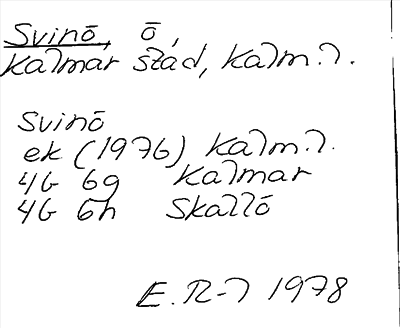 Svinö, ö,
Kalmar stad, Kalm. l.
Svinö
ek (1976) Kalm. l.
4G 6g Kalmar
4G 6h Skallö
E. R-l 1978